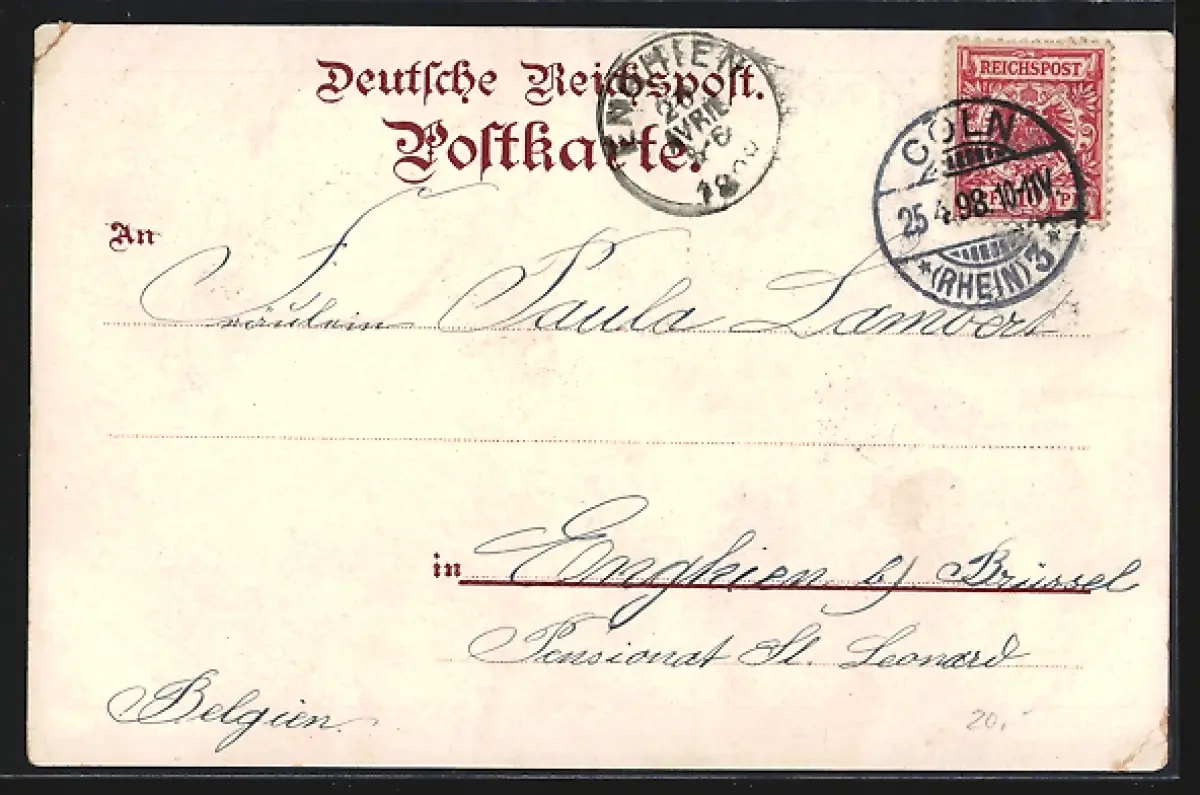 Deutsche Reichspost.
Postkarte.
ENGHIEN
26
AVRIL
18
REICHSPOST
CÖLN
25 4.98. 10-11V.
*(RHEIN) 3*
An
Fräulein Paula Lambert
in Engkien b/ Brüssel
Pensionat St. Leonard
Belgien.
20,-